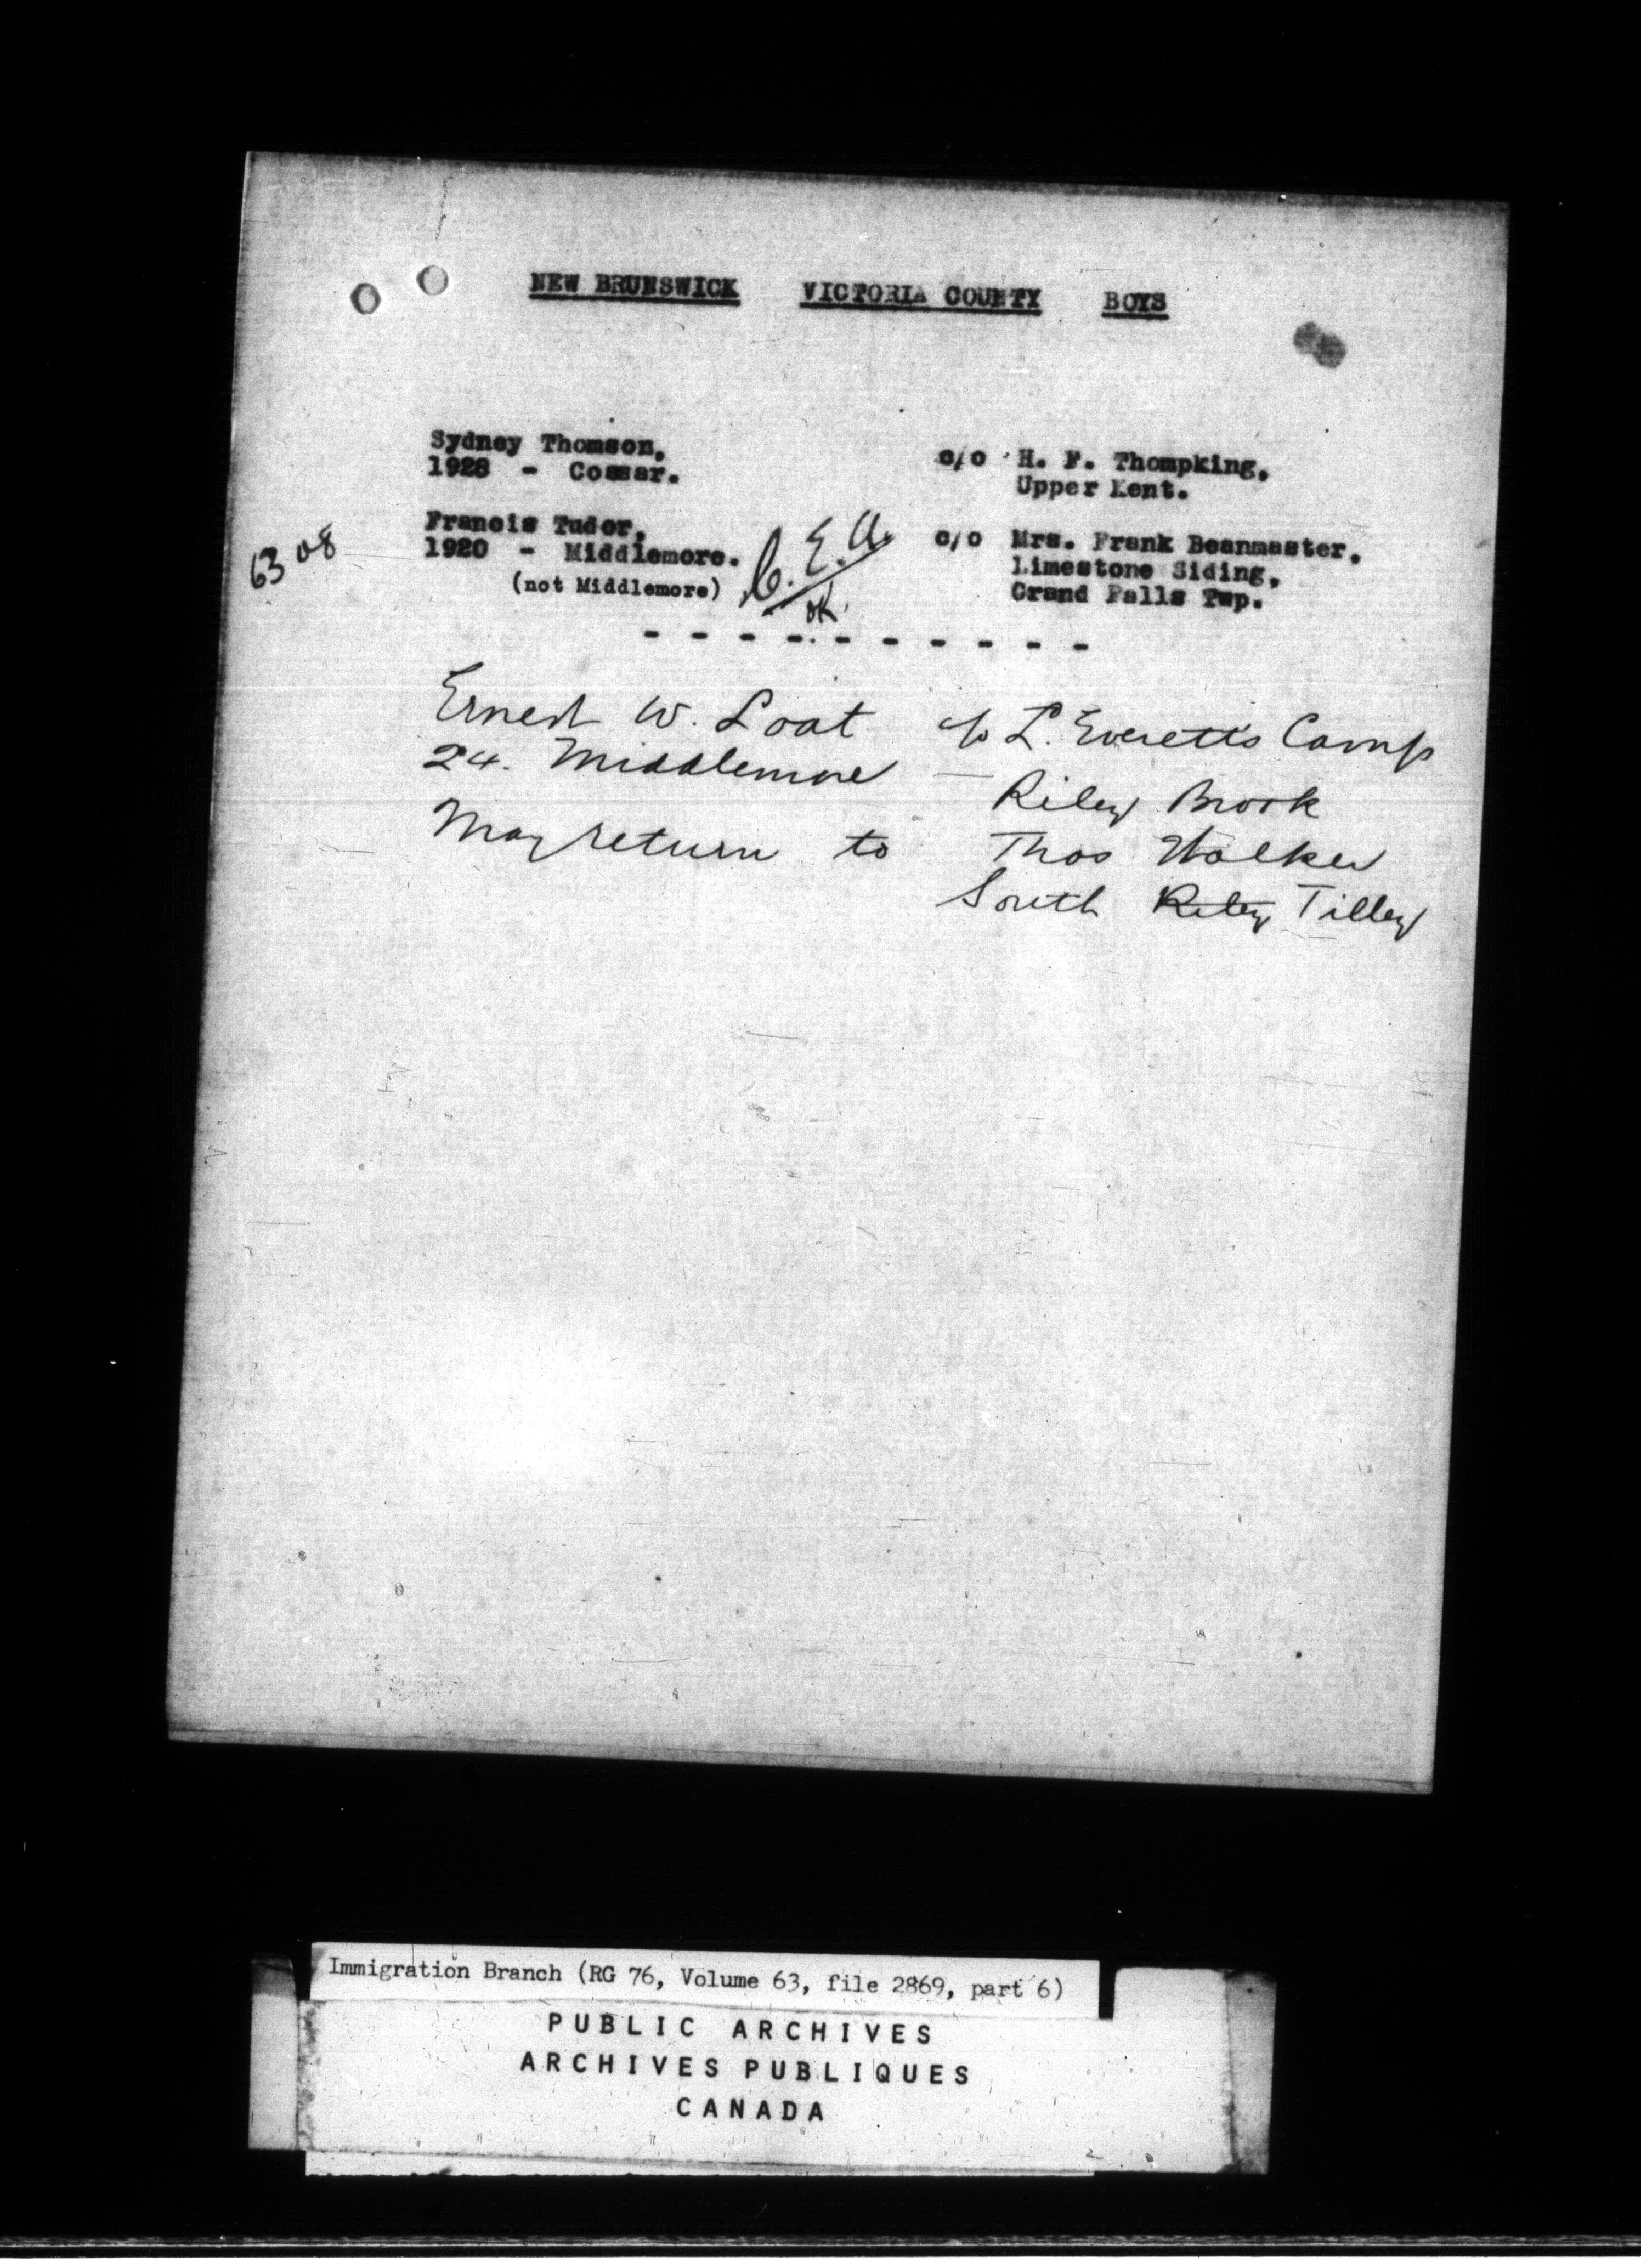 NEW BRUNSWICK VICTORIA COUNTY BOYS
Sydney Thomson, c/o H. F. Thompking,
1928 - Cossar. Upper Kent.
Francis Tudor, c/o Mrs. Frank Beanmaster,
1920 - Middlemore. Limestone Siding,
(not Middlemore) Grand Falls Twp.
6308
C.E.A.
OK.
- - - - - - - - - -
Ernest W. Loat c/o L. Everett's Camp
24. Middlemore — Riley Brook
May return to Thos Walker
South Riley Tilley
Immigration Branch (RG 76, Volume 63, file 2869, part 6)
PUBLIC ARCHIVES
ARCHIVES PUBLIQUES
CANADA